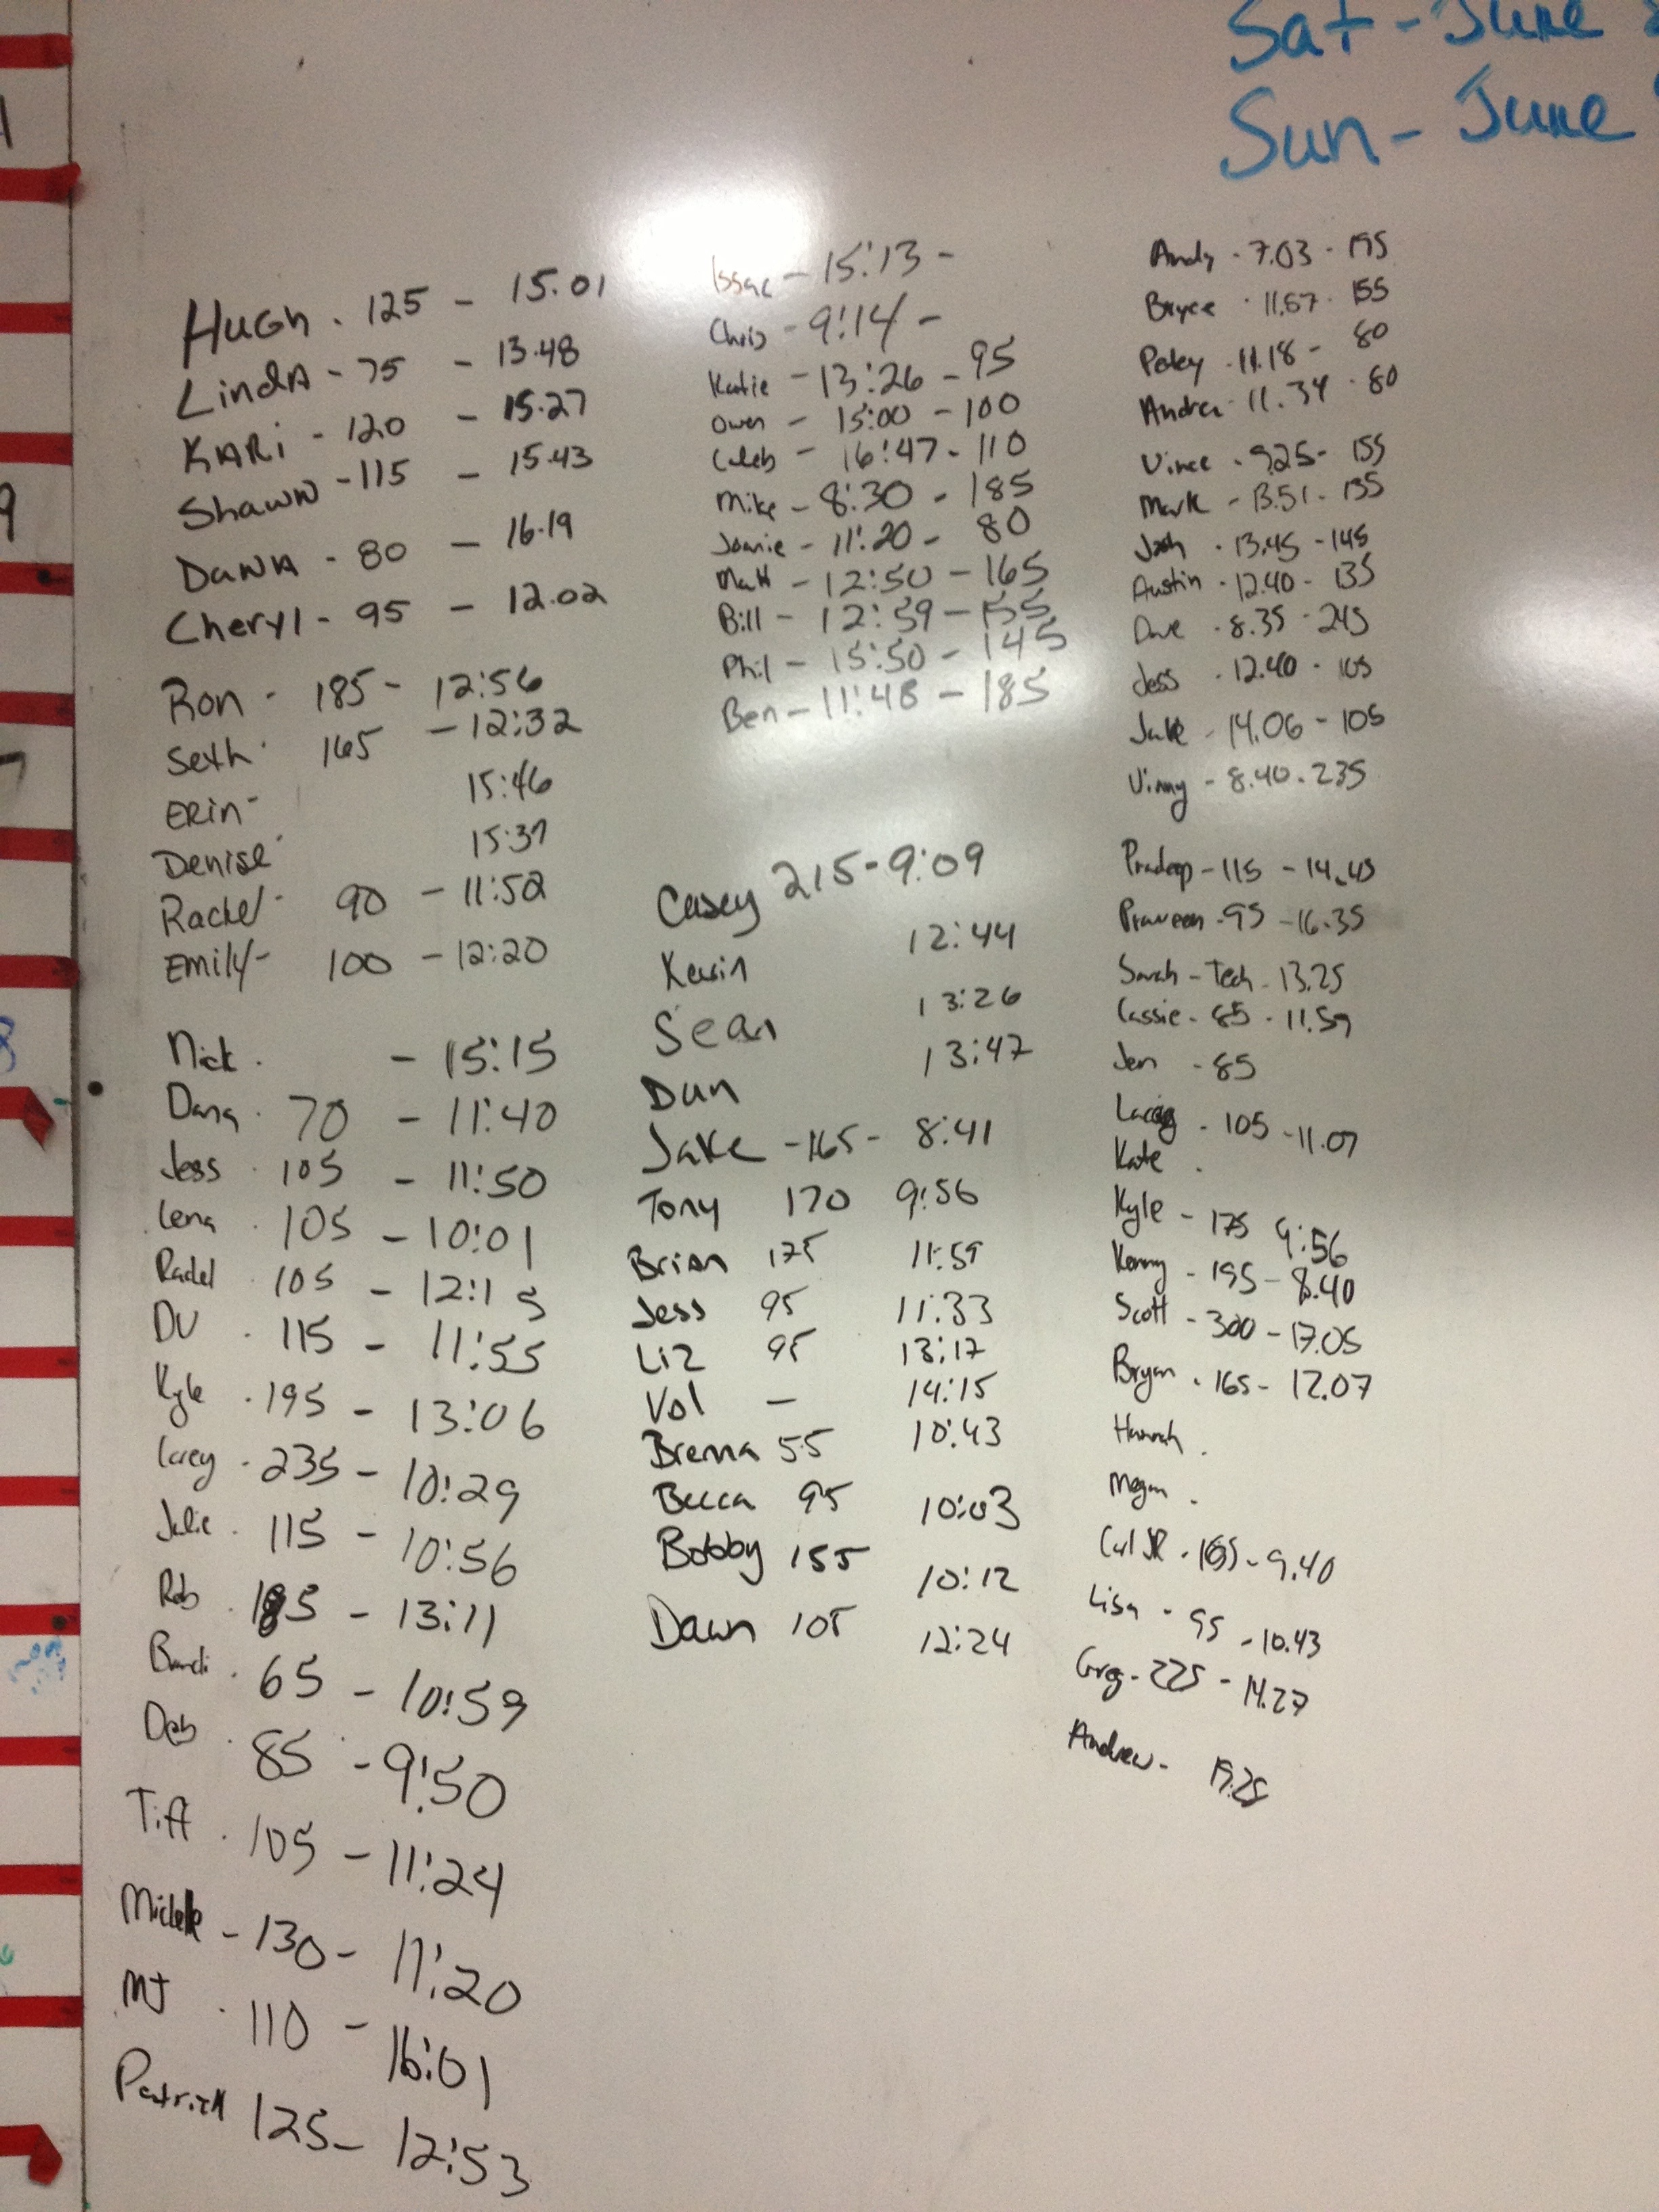 Sat - June
Sun - June
Hugh - 125 - 15.01
LindA - 75 - 13.48
KARi - 120 - 15.27
Shawn - 115 - 15.43
DawnA - 80 - 16.19
Cheryl - 95 - 12.02
Ron - 185 - 12:56
Seth - 165 - 12:32
ERin - 15:46
Denise - 15:37
Rachel - 90 - 11:52
Emily - 100 - 12:20
Nick - 15:15
Dana - 70 - 11:40
Jess - 105 - 11:50
Lena - 105 - 10:01
Rachel - 105 - 12:15
DV - 115 - 11:55
Kyle - 195 - 13:06
Corey - 235 - 10:29
Julie - 115 - 10:56
Rob - 185 - 13:11
65 - 10:59
Deb - 85 - 9:50
Tiff - 105 - 11:24
Michelle - 130 - 11:20
MJ - 110 - 16:01
Patrick 125 - 12:53
Issac - 15:13 -
Chris - 9:14 -
Katie - 13:26 - 95
Owen - 15:00 - 100
Caleb - 16:47 - 110
Mike - 8:30 - 185
Joanie - 11:20 - 80
Matt - 12:50 - 165
Bill - 12:59 - 155
Phil - 15:50 - 145
Ben - 11:48 - 185
Casey 215 - 9:09
Kevin 12:44
Sean 13:26
Dan 13:47
Jake - 165 - 8:41
Tony 170 9:56
Brian 175 11:59
Jess 95 11:33
Liz 95 13:17
Val - 14:15
Brenna 55 10:43
Becca 95 10:03
Bobby 155 10:12
Dawn 105 12:24
Andy - 7.03 - 195
Bryce - 11.57 - 155
11.18 - 80
Andrea - 11.34 - 80
Vince - 9.25 - 155
Mark - 13.51 - 135
Josh - 13.45 - 145
Austin - 12.40 - 135
Dave - 8.35 - 245
Jess - 12.40 - 105
Jake - 14.06 - 105
Vinny - 8.40 - 235
Pradeep - 115 - 14.43
Praveen - 95 - 16.35
Sarah - Tech - 13.25
Cassie - 85 - 11.59
Jen - 85
Lacey - 105 - 11.07
Kate -
Kyle - 175 9:56
Kenny - 195 - 8.40
Scott - 300 - 17.05
Bryan - 165 - 12.07
Hannah -
Megan -
Carl JR - 9.40
Lisa - 95 - 10.43
Greg - 225 - 14.27
Andrew -